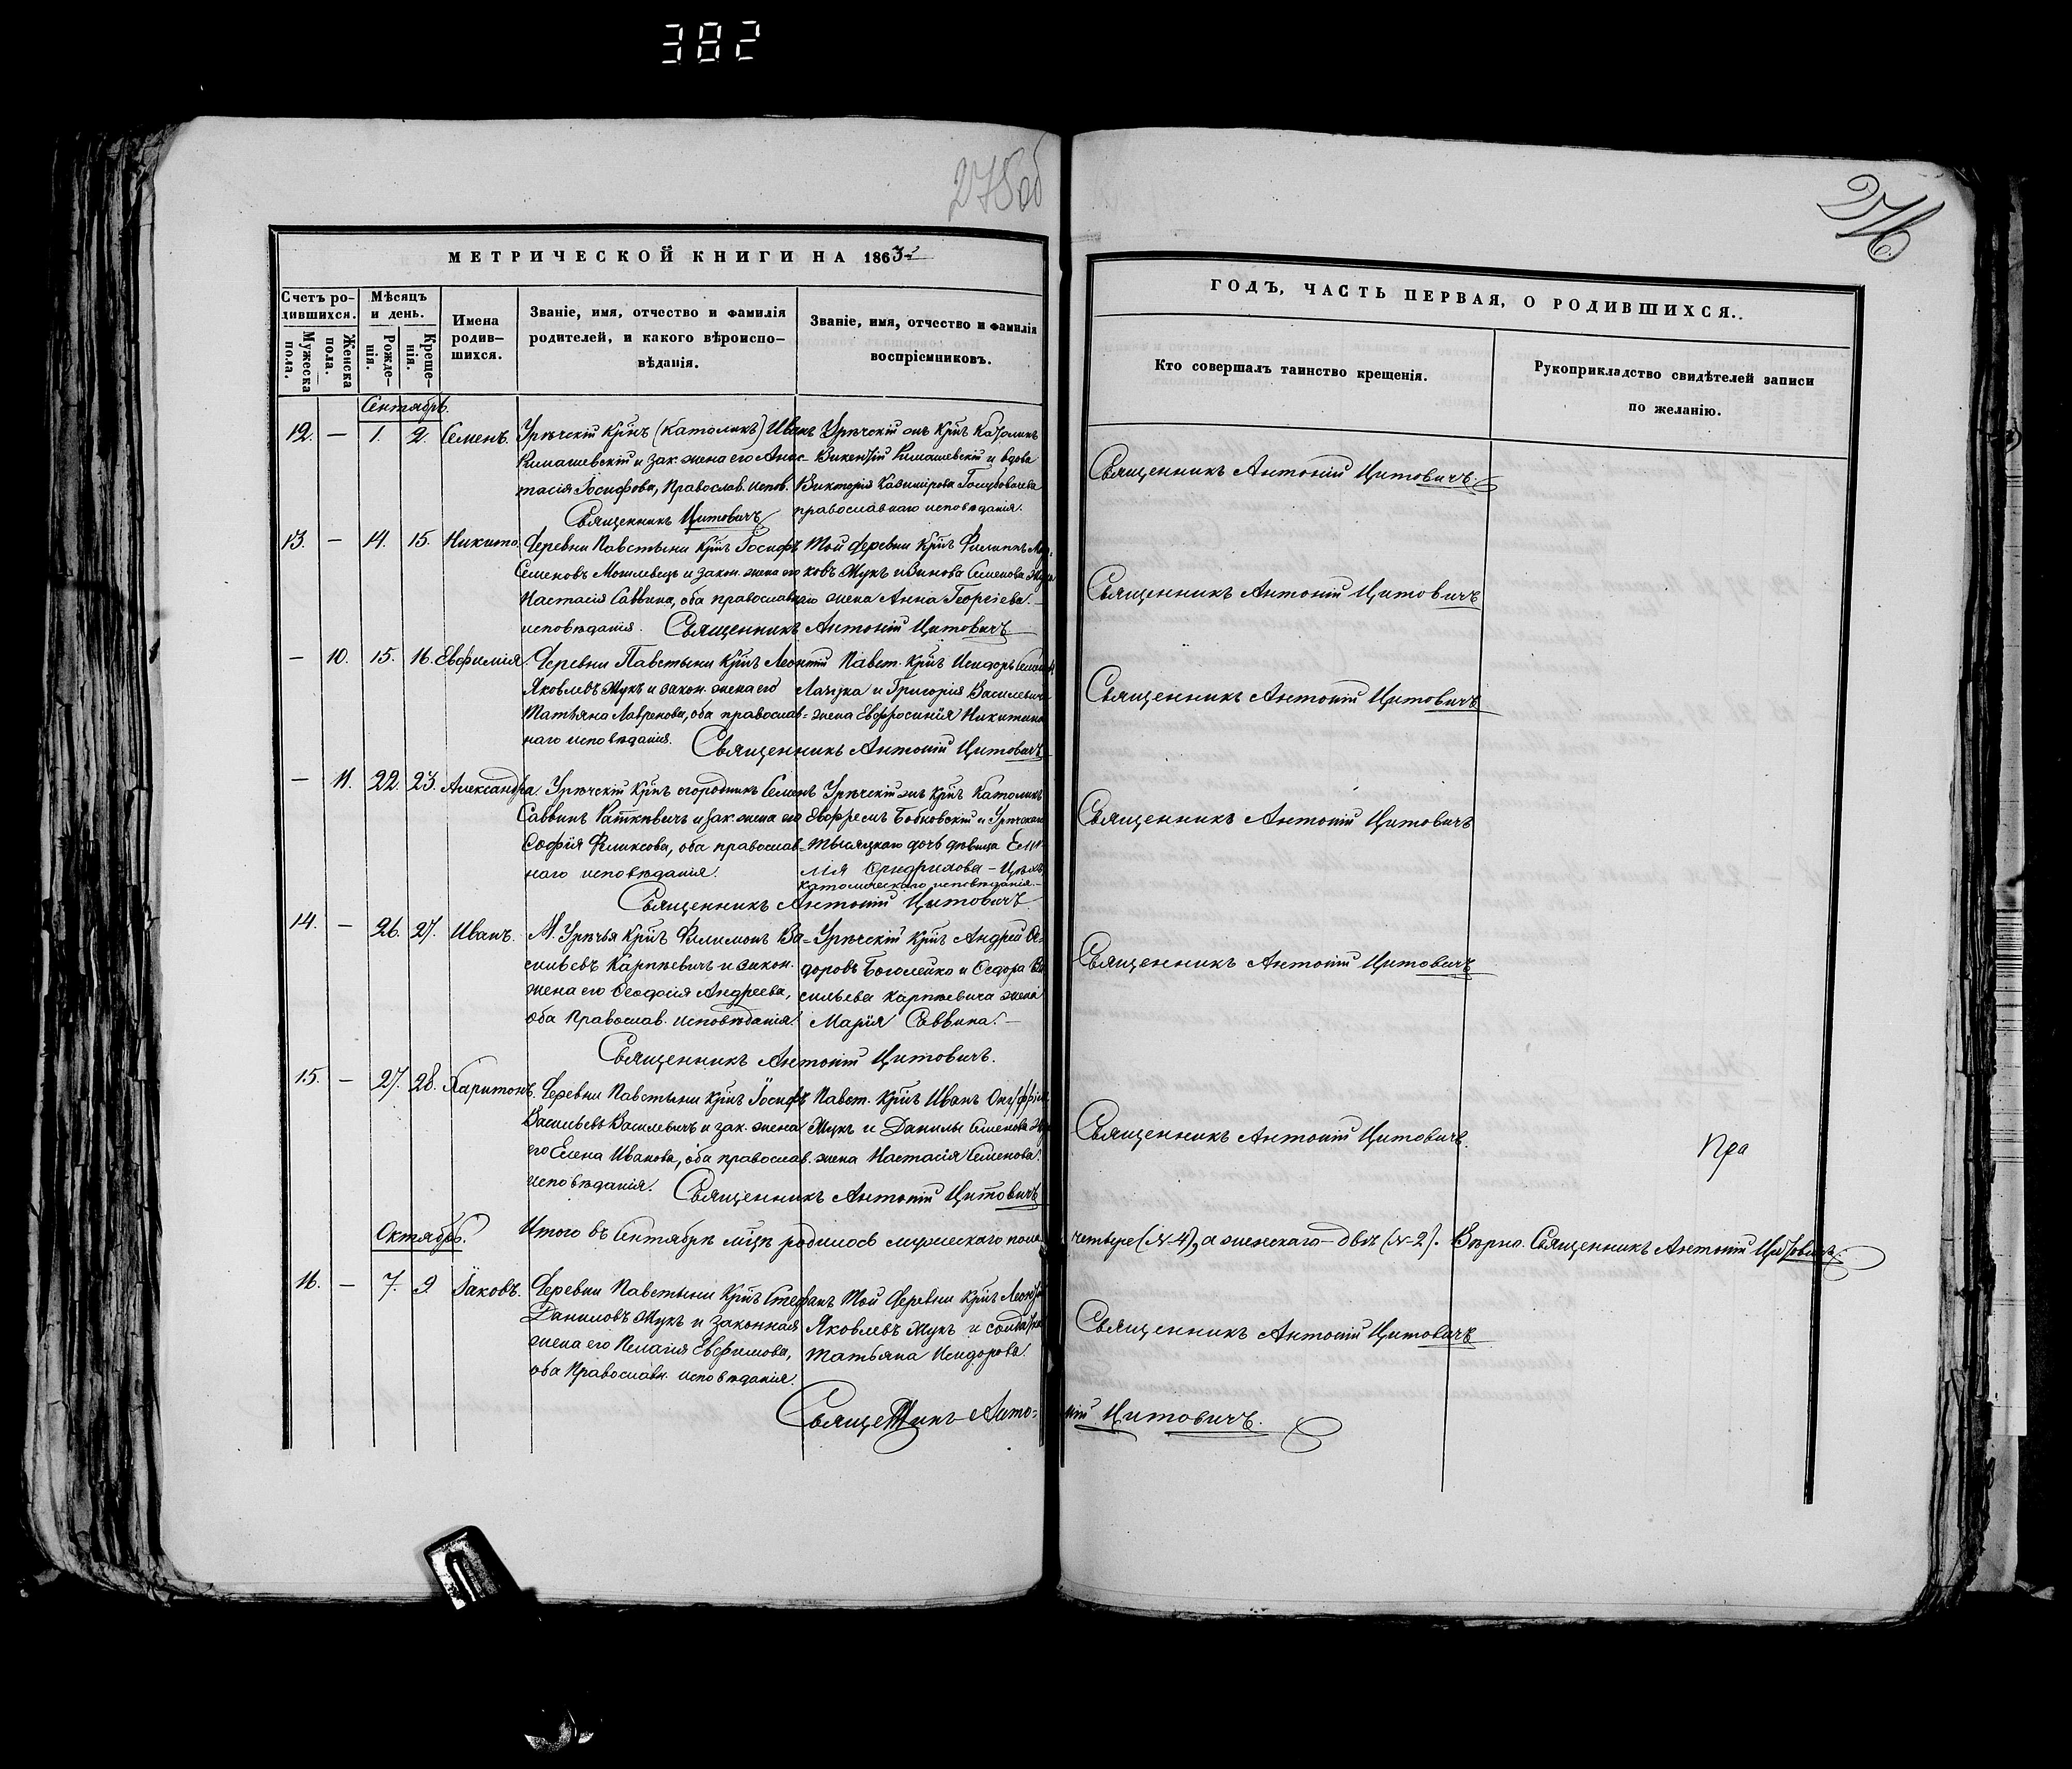 382
275об
276
МЕТРИЧЕСКОЙ КНИГИ НА 1863
ГОДЪ, ЧАСТЬ ПЕРВАЯ, О РОДИВШИХСЯ.
Счетъ ро-
дившихся.
Мужеска
пола.
Женска
пола.
Мѣсяцъ
и день.
Рожде-
нія.
Креще-
нія.
Имена
родив-
шихся.
Званіе, имя, отчество и фамилія
родителей, и какого вѣроиспо-
вѣданія.
Званіе, имя, отчество и фамилія
воспріемниковъ.
Кто совершалъ таинство крещенія.
Рукоприкладство свидѣтелей записи
по желанію.
Сентябрь.
12. — 1. 2. Семенъ.
Урѣчскій Крнъ (католикъ) Иванъ
Римашевскій и зак. жена его Анас-
тасія Іосифова, Православ. испов.
Урѣчскій Крнъ Католикъ
Викентій Римашевскій и вдова
Викторія Казимірова
православнаго исповѣданія.
Священникъ Цитовичъ
Священникъ Антоній Цитовичъ.
13. — 14. 15. Никита.
Деревни Павстыни Крнъ Іосифъ
Семеновъ Могилевецъ и закон. жена его
Настасія Саввина, оба православнаго
исповѣданія.
Той деревни Крнъ Филиппъ
ковъ Жукъ и Семенова
жена Анна Георгіева.
Священникъ Антоній Цитовичъ
Священникъ Антоній Цитовичъ
— 10. 15. 16. Евфимія.
Деревни Павстыни Крнъ Леонтій
Яковлевъ Жукъ и закон. жена его
Татьяна Лавренова, оба православ-
наго исповѣданія.
Павст. Крнъ Исидоръ
и Григорія Василевича
жена Евфросинія Никитина
Священникъ Антоній Цитовичъ
Священникъ Антоній Цитовичъ
— 11. 22. 23. Александра
Урѣчскій Крнъ огородникъ Семенъ
Саввинъ Раткевичъ и зак. жена его
Софія Феликсова, оба православ-
наго исповѣданія.
Урѣчскій Крнъ Католикъ
Ефремъ Бобковскій и
дочь дѣвица
католическаго исповѣданія.
Священникъ Антоній Цитовичъ
Священникъ Антоній Цитовичъ
14. — 26. 27. Иванъ.
М. Урѣчья Крнъ Филимонъ Ва-
сильевъ Карпѣевичъ и закон.
жена его Ѳеодосія Андреева,
оба Православ. исповѣданія.
Урѣчскій Крнъ Андрей Ѳе-
доровъ Боголейко и Ѳедора Ва
сильева Карпѣевича жена
Марія Саввина.
Священникъ Антоній Цитовичъ.
Священникъ Антоній Цитовичъ
15. — 27. 28. Харитонъ.
Деревни Павстыни Крнъ Іосифъ
Васильевъ Василевичъ и зак. жена
его Елена Иванова, оба православ.
исповѣданія.
Павст. Крнъ Иванъ
Жукъ и Данилы Семенова
жена Настасія Семенова.
Священникъ Антоній Цитовичъ
Священникъ Антоній Цитовичъ.
Пра
Итого въ Сентябрѣ мцѣ родилось мужескаго пола четыре (№4), а женскаго – двѣ (№2). Вѣрно. Священникъ Антоній Цитовичъ.
Октябрь.
16. — 7. 9. Іаковъ.
Деревни Павстыни Крнъ Стефанъ
Даниловъ Жукъ и законная
жена его Пелагія Евфимова,
оба Православн. исповѣданія.
Той деревни Крнъ Леонтій
Яковлевъ Жукъ и солдатка
Татьяна Исидорова.
Священникъ Антоній Цитовичъ
Священникъ Антоній Цитовичъ.